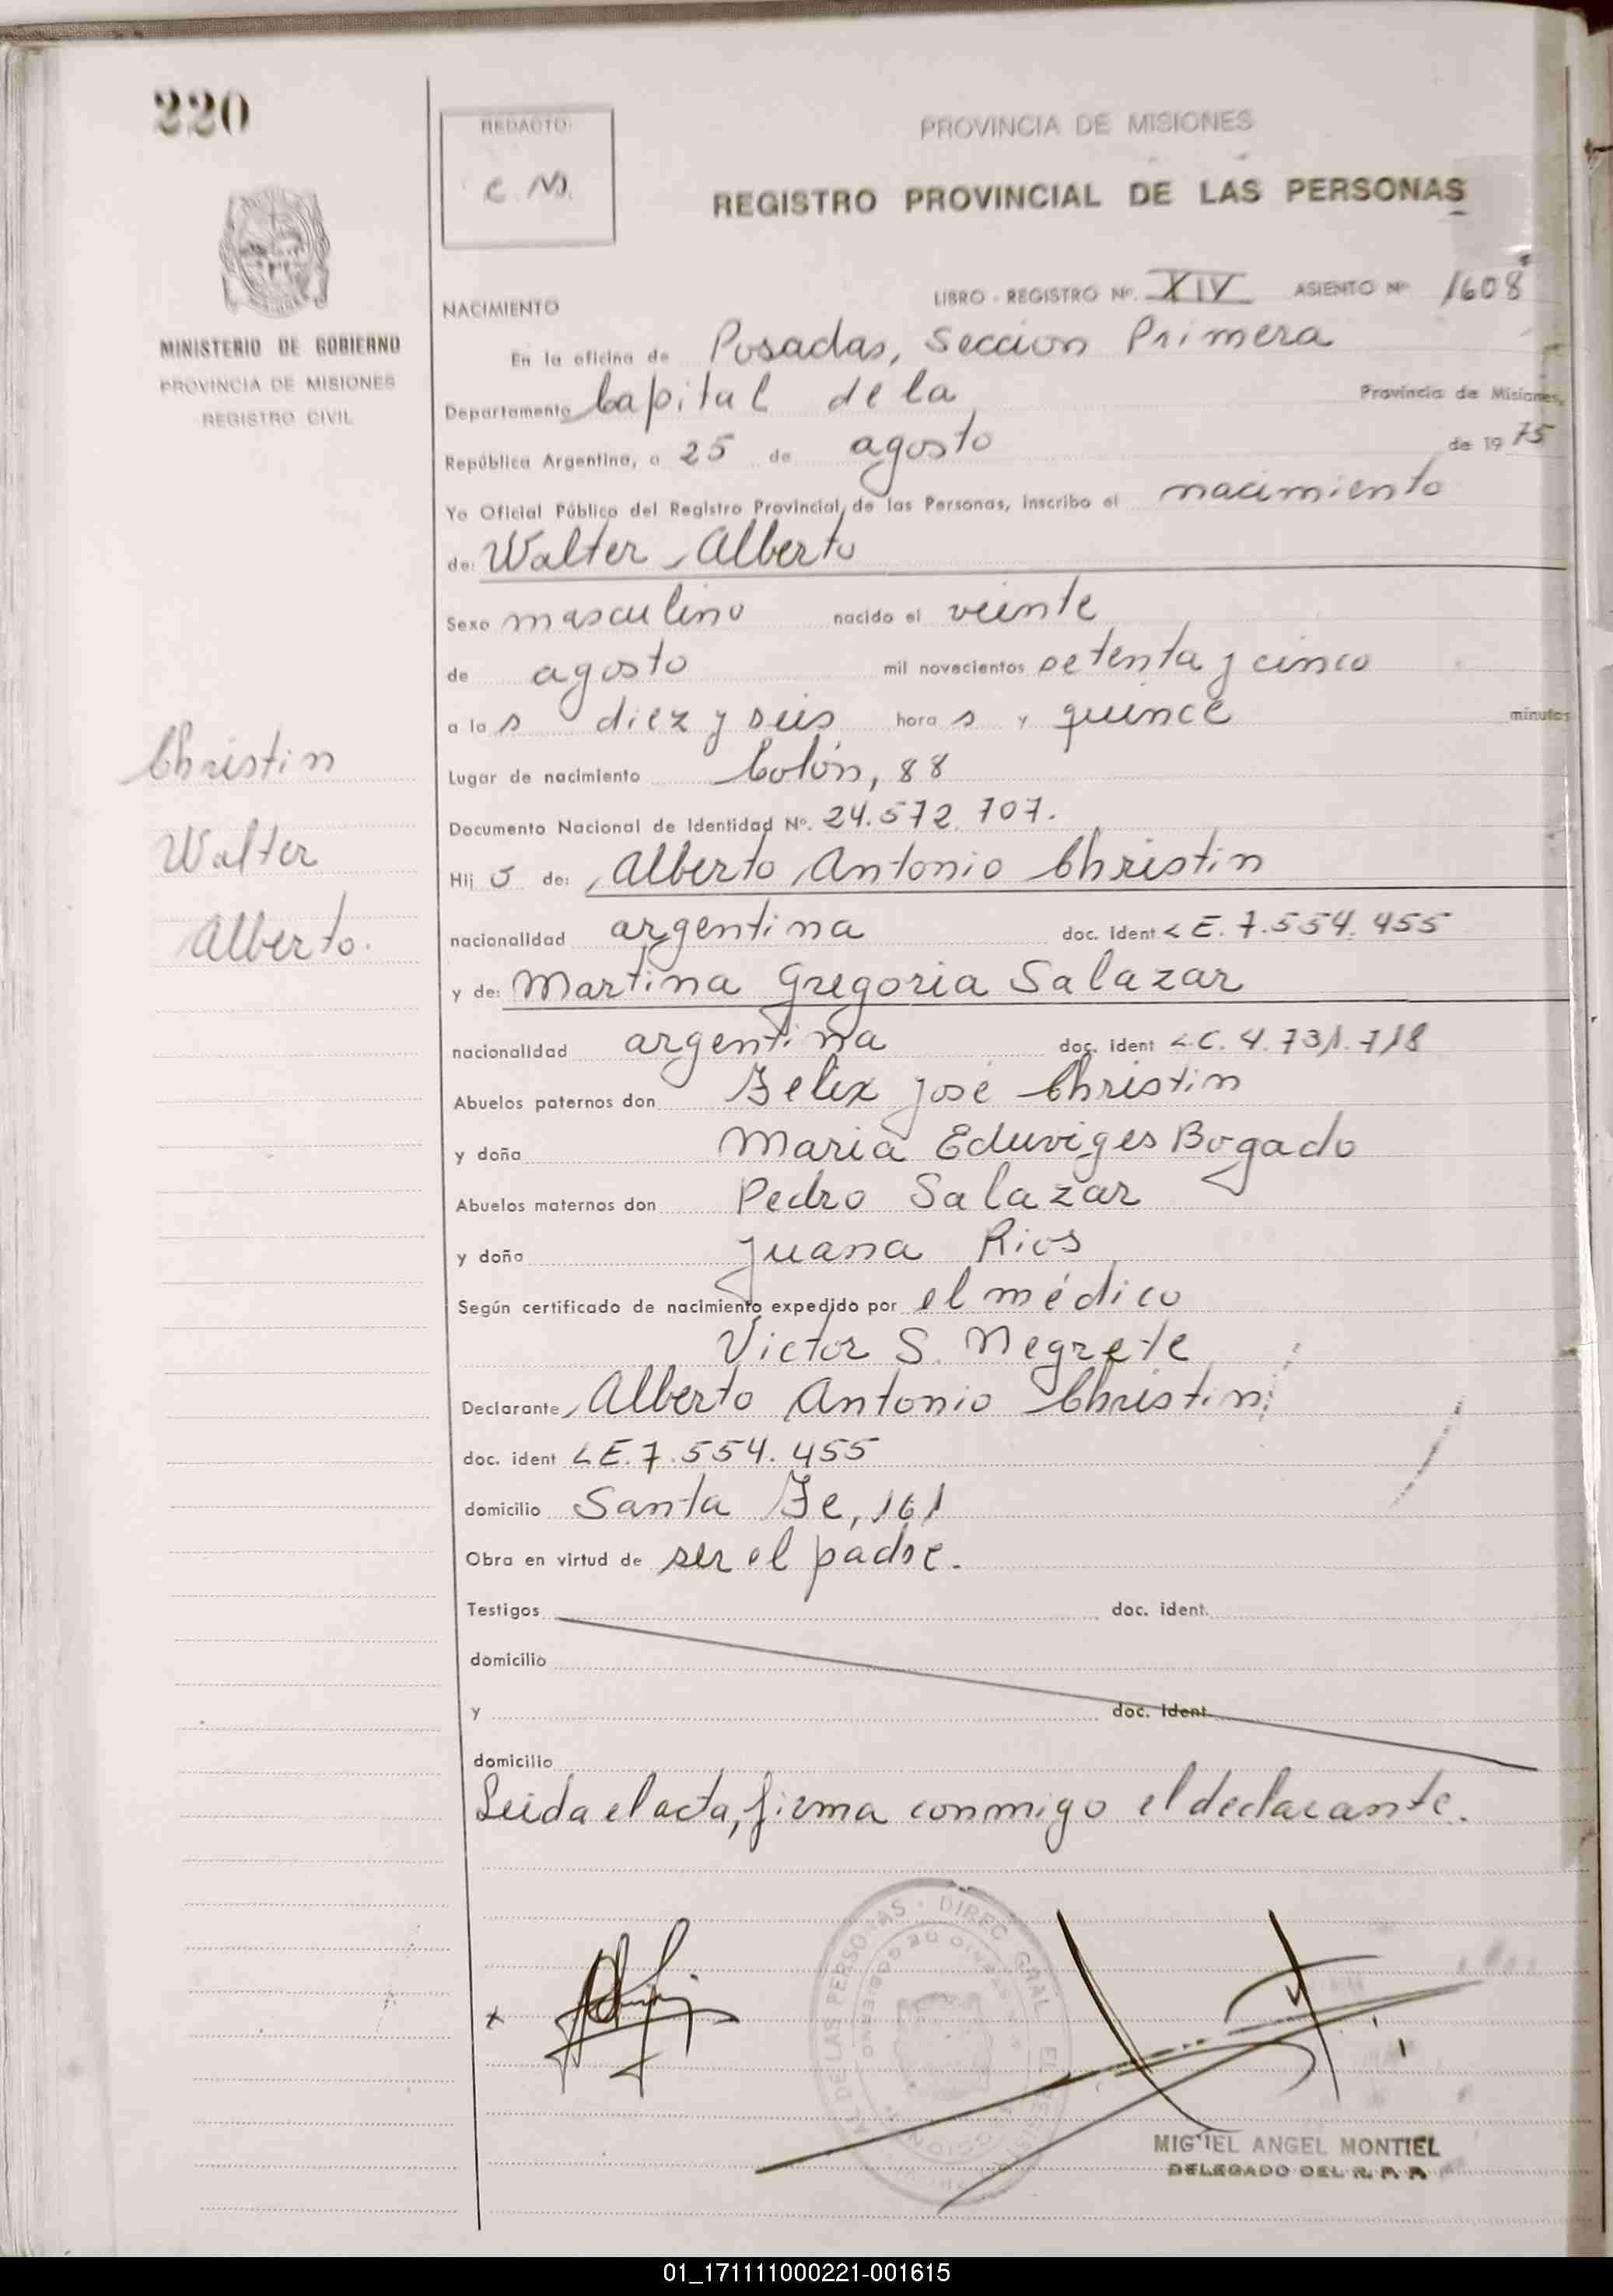 220
REDACTO:
C. M.
PROVINCIA DE MISIONES
REGISTRO PROVINCIAL DE LAS PERSONAS
MINISTERIO DE GOBIERNO
PROVINCIA DE MISIONES
REGISTRO CIVIL
NACIMIENTO
LIBRO - REGISTRO Nº. XIV ASIENTO Nº 1608
En la oficina de Posadas, Seccion Primera
Departamento Capital de la Provincia de Misiones,
República Argentina, a 25 de agosto de 1975
Yo Oficial Público del Registro Provincial de las Personas, inscribo el nacimiento
de: Walter Alberto
Sexo masculino nacido el veinte
de agosto mil novecientos setenta y cinco
a las diez y seis horas y quince minutos
Lugar de nacimiento Colón, 88
Documento Nacional de Identidad Nº. 24.572.707.
Hijo de: Alberto Antonio Christin
nacionalidad argentina doc. ident LE. 7.554.455
y de: Martina Gregoria Salazar
nacionalidad argentina doc. ident LC. 4.731.718
Abuelos paternos don Felix José Christin
y doña Maria Eduviges Bogado
Abuelos maternos don Pedro Salazar
y doña Juana Rios
Según certificado de nacimiento expedido por el médico
Victor S. Negrete
Declarante Alberto Antonio Christin
doc. ident LE. 7.554.455
domicilio Santa Fe, 161
Obra en virtud de ser el padre.
Testigos doc. ident.
domicilio
y doc. ident.
domicilio
Leida el acta, firma conmigo el declarante.
Christin
Walter
Alberto.
MIGUEL ANGEL MONTIEL
DELEGADO DEL R. P. P.
01_171111000221-001615